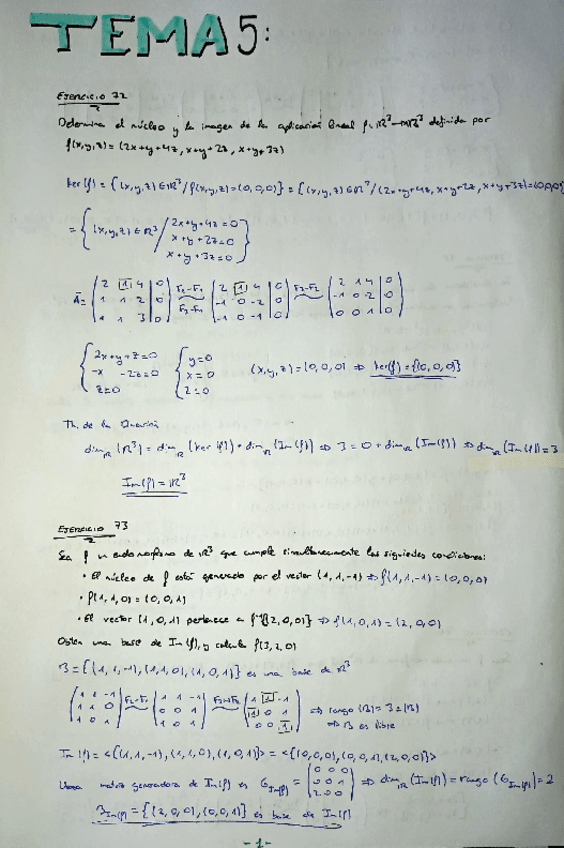 TEMA 5:
EJERCICIO 72
Determina el núcleo y la imagen de la aplicación lineal f: R³→R³ definida por
f(x,y,z)=(2x+y+4z, x+y+2z, x+y+3z)
Ker(f) = {(x,y,z)∈R³/f(x,y,z)=(0,0,0)} = {(x,y,z)∈R³/(2x+y+4z, x+y+2z, x+y+3z)=(0,0,0)}
2x+y+4z=0
= {(x,y,z)∈R³ / x+y+2z=0
x+y+3z=0 }
2 1 4 | 0 2 1 4 | 0 2 1 4 | 0
Ā= 1 1 2 | 0 F2-F1 -1 0 -2 | 0 F3-F2 -1 0 -2 | 0
1 1 3 | 0 F3-F1 -1 0 -1 | 0 0 0 1 | 0
2x+y+z=0 y=0
-x -2z=0 x=0 (x,y,z)=(0,0,0) ⇒ Ker(f)={(0,0,0)}
z=0 z=0
Th. de la
dim_R(R³)=dim_R(Ker(f))+dim_R(Im(f)) ⇒ 3=0+dim_R(Im(f)) ⇒ dim_R(Im(f))=3
Im(f)=R³
EJERCICIO 73
Sea f un endomorfismo de R³ que cumple simultáneamente las siguientes condiciones:
• El núcleo de f está generado por el vector (1,1,-1) ⇒ f(1,1,-1)=(0,0,0)
• f(1,1,0)=(0,0,1)
• El vector (1,0,1) pertenece a f⁻¹{(2,0,0)} ⇒ f(1,0,1)=(2,0,0)
Obtén una base de Im(f), y calcula f(3,2,0)
B={(1,1,-1),(1,1,0),(1,0,1)} es una base de R³
1 1 -1 1 1 -1 1 1 -1
1 1 0 F2-F1 0 0 1 1 0 1 ⇒ rango(B)=3=|B|
1 0 1 1 0 1 0 0 1 ⇒ B es libre
Im(f)=<{(1,1,-1),(1,1,0),(1,0,1)}> = <{(0,0,0),(0,0,1),(2,0,0)}>
0 0 0
Una matriz generadora de Im(f) es G_Im(f) = 0 0 1 ⇒ dim_R(Im(f))=rango(G_Im(f))=2
2 0 0
B_Im(f)={(2,0,0),(0,0,1)} es base de Im(f)
-1-